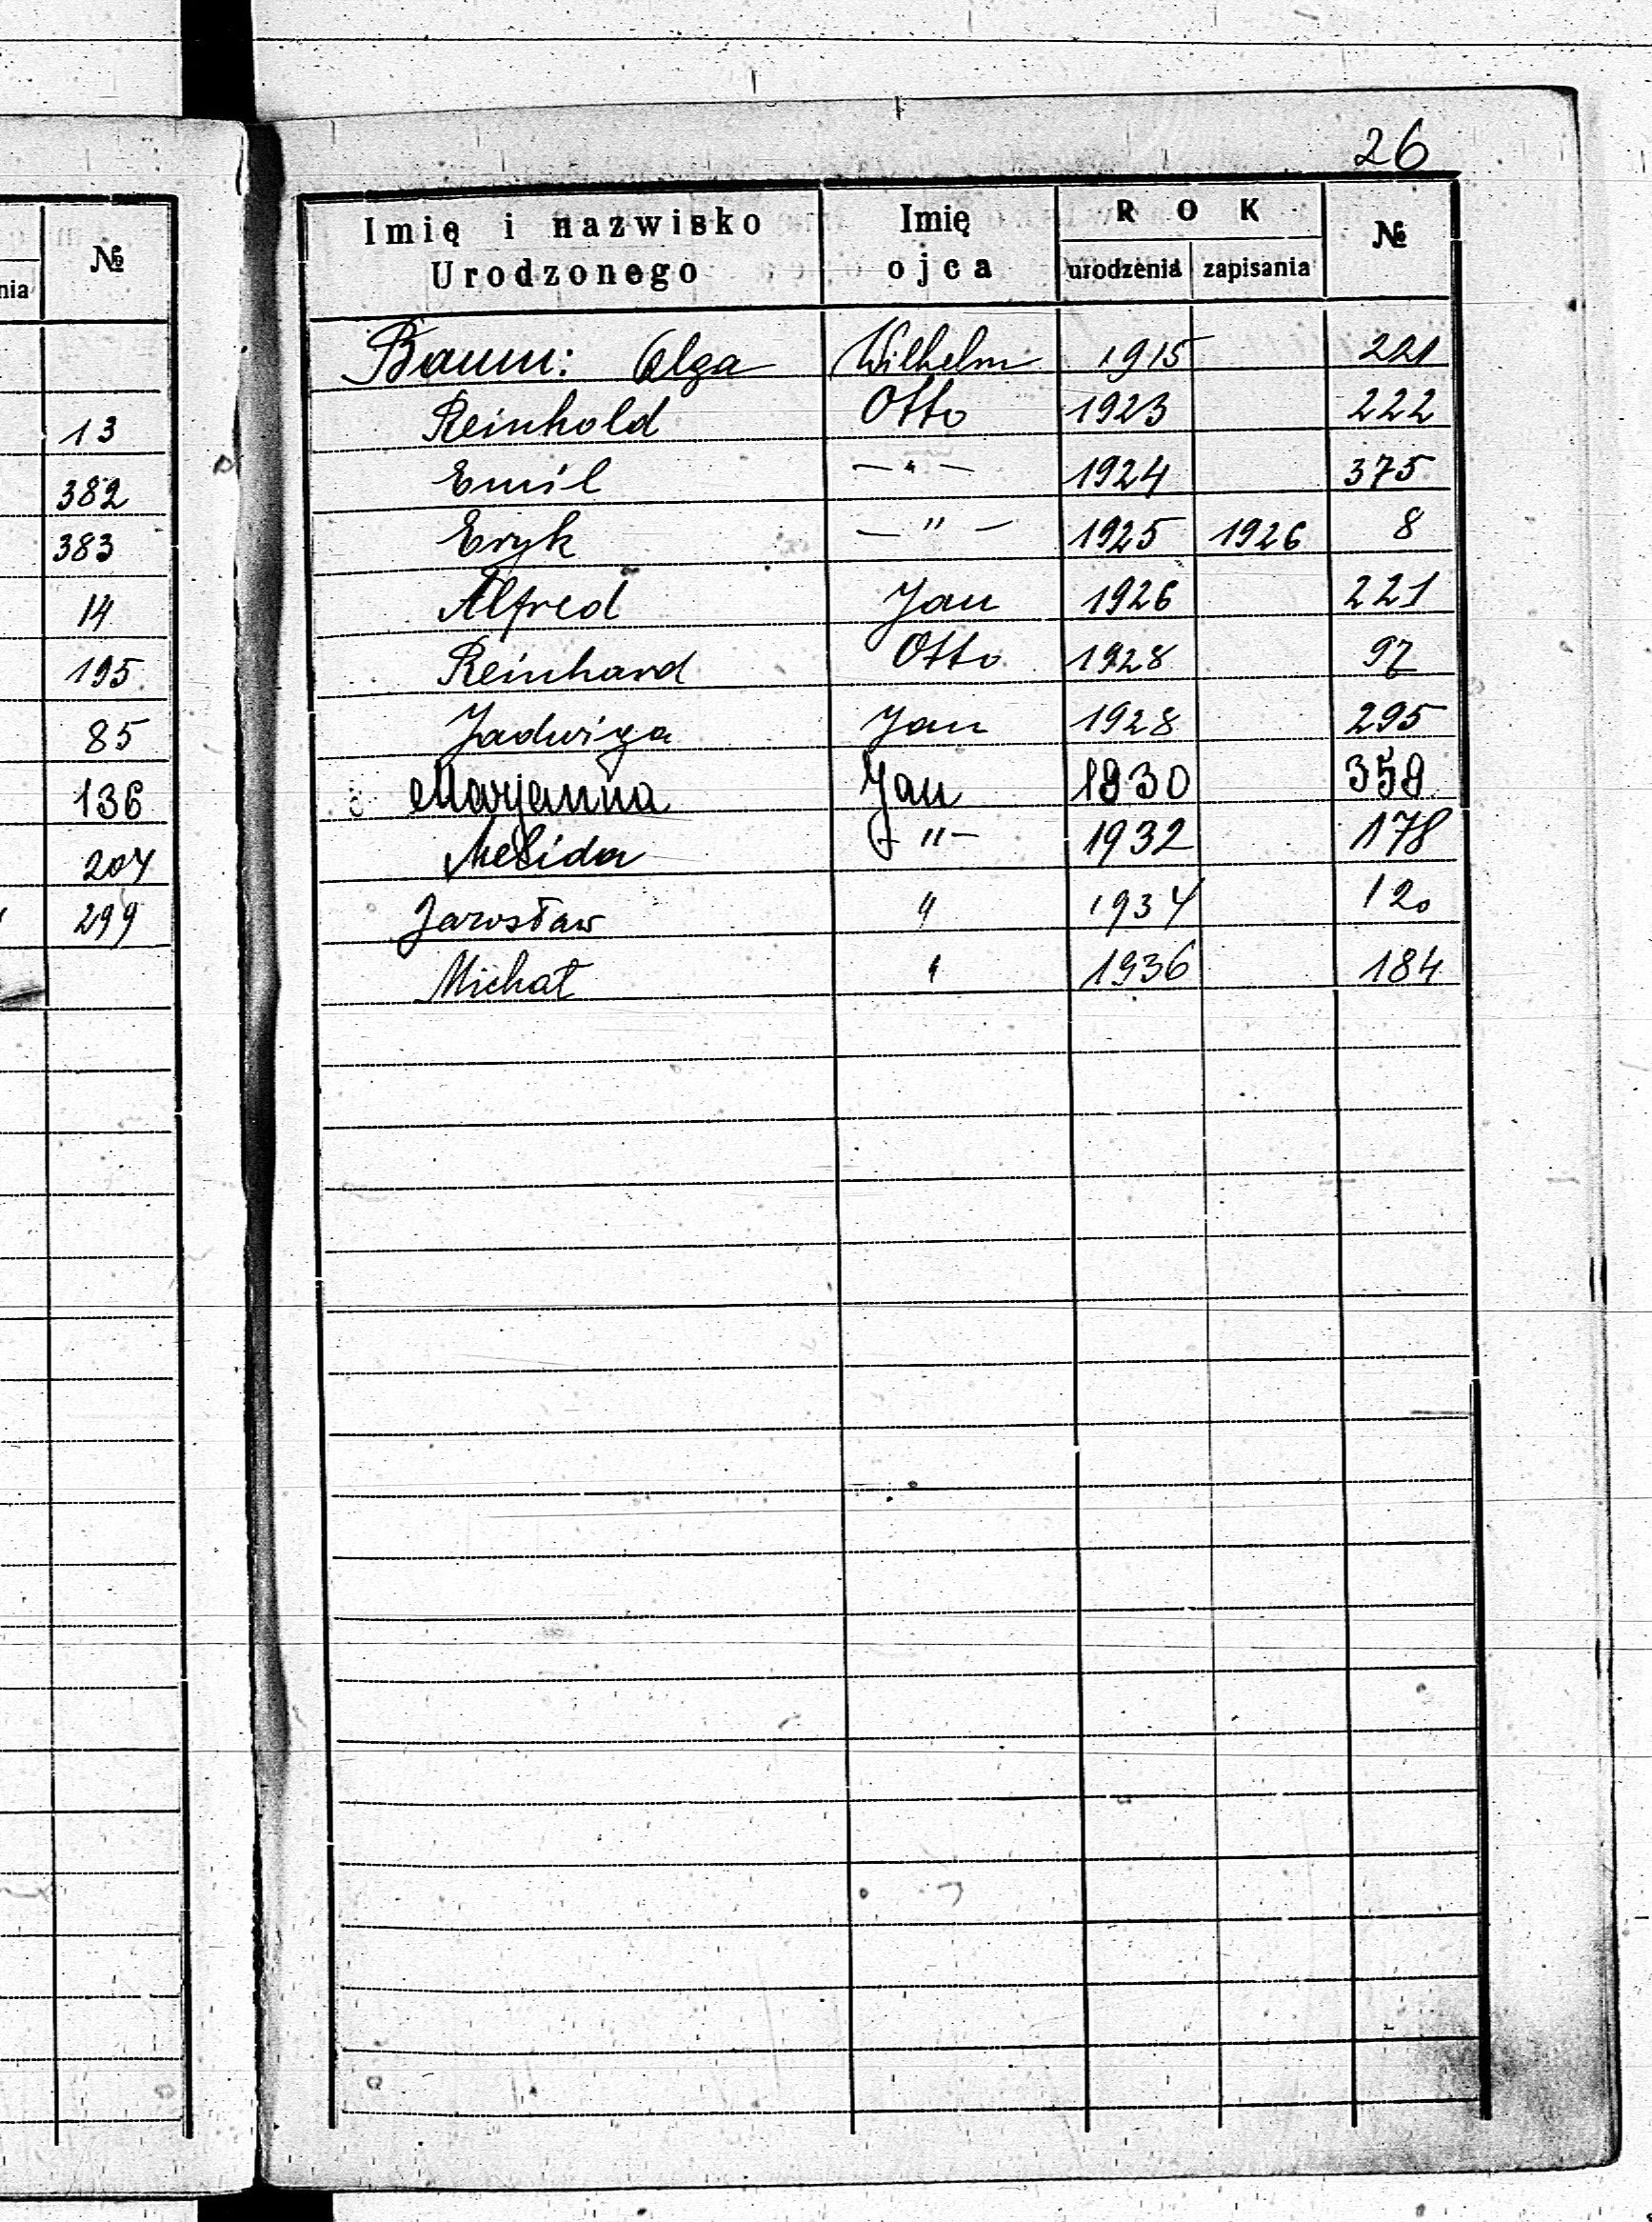 №
nia
13
382
383
14
195
85
136
204
299
26
Imię i nazwisko Urodzonego
Imię ojca
ROK
urodzenia zapisania
№
Baum: Olga Wilhelm 1915 221
Reinhold Otto 1923 222
Emil —"— 1924 375
Eryk —"— 1925 1926 8
Alfred Jan 1926 221
Reinhard Otto 1928 97
Jadwiga Jan 1928 295
Maryanna Jan 1930 359
Melida —"— 1932 178
Jarosław " 1934 120
Michał " 1936 184